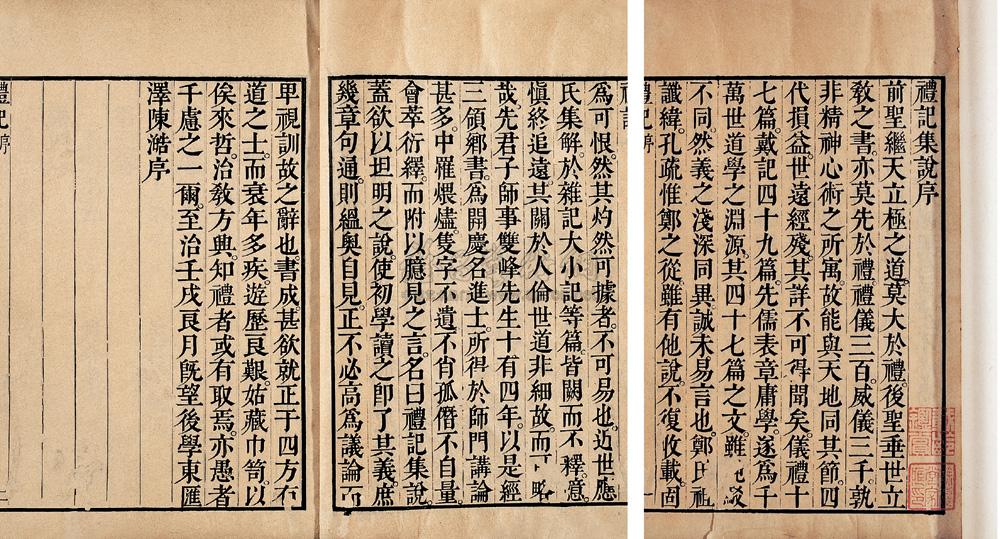 禮記集說序
前聖繼天立極之道莫大於禮後聖垂世立
敎之書亦莫先於禮禮儀三百威儀三千孰
非精神心術之所寓故能與天地同其節四
代損益世遠經殘其詳不可得聞矣儀禮十
七篇戴記四十九篇先儒表章庸學遂爲千
萬世道學之淵源其四十七篇之文雖
不同然義之淺深同異誠未易言也鄭氏祖
讖緯孔疏惟鄭之從雖有他說不復收載固
禮記 序
爲可恨然其灼然可據者不可易也近世應
氏集解於雜記大小記等篇皆闕而不釋意
愼終追遠其關於人倫世道非細故而 略
哉先君子師事雙峰先生十有四年以是經
三領鄉書爲開慶名進士所得於師門講論
甚多中罹煨燼隻字不遺不肖孤僭不自量
會萃衍繹而附以臆見之言名曰禮記集說
蓋欲以坦明之說使初學讀之卽了其義庶
幾章句通則縕奧自見正不必高爲議論而
卑視訓故之辭也書成甚欲就正于四方有
道之士而衰年多疾遊歷良艱姑藏巾笥以
俟來哲治敎方典知禮者或有取焉亦愚者
千慮之一爾至治壬戌良月旣望後學東匯
澤陳澔序
禮記 序
二